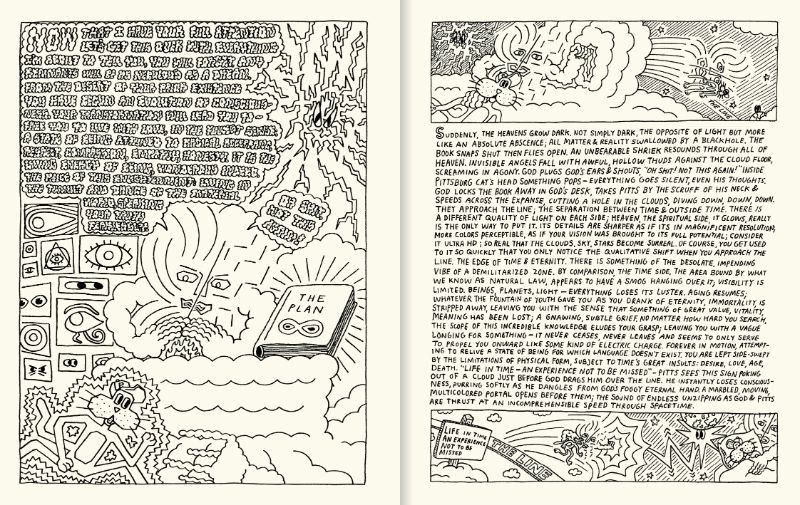 NOW THAT I HAVE YOUR FULL ATTENTION
LET'S GET THIS OVER WITH. EVERYTHING
I'M ABOUT TO TELL YOU, YOU WILL FORGET. ANY
REMNANTS WILL BE AS NEBULOUS AS A DREAM.
FROM THE DESERT OF YOUR BRIEF EXISTENCE
YOU HAVE BEGUN AN EVOLUTION OF CONSCIOUS-
NESS. YOUR TRANSFORMATION WILL LEAD YOU TO
YOUR TRUTH
OH SHIT
NOT THIS
AGAIN!
THE
PLAN
THE LINE
SUDDENLY, THE HEAVENS GROW DARK. NOT SIMPLY DARK, THE OPPOSITE OF LIGHT BUT MORE
LIKE AN ABSOLUTE ABSCENCE; ALL MATTER & REALITY SWALLOWED BY A BLACKHOLE, THE
BOOK SNAPS SHUT THEN FLIES OPEN. AN UNBEARABLE SHRIEK RESOUNDS THROUGH ALL OF
HEAVEN. INVISIBLE ANGELS FALL WITH AWFUL, HOLLOW THUDS AGAINST THE CLOUD FLOOR,
SCREAMING IN AGONY. GOD PLUGS GOD'S EARS & SHOUTS, "OH SHIT! NOT THIS AGAIN!" INSIDE
PITTSBURG CAT'S HEAD SOMETHING POPS – EVERYTHING GOES SILENT, EVEN HIS THOUGHTS.
GOD LOCKS THE BOOK AWAY IN GOD'S DESK, TAKES PITTS BY THE SCRUFF OF HIS NECK &
SPEEDS ACROSS THE EXPANSE, CUTTING A HOLE IN THE CLOUDS, DIVING DOWN, DOWN, DOWN.
THEY APPROACH THE LINE, THE SEPARATION BETWEEN TIME & OUTSIDE TIME. THERE IS
A DIFFERENT QUALITY OF LIGHT ON EACH SIDE; HEAVEN, THE SPIRITUAL SIDE, IT GLOWS, REALLY
IS THE ONLY WAY TO PUT IT. ITS DETAILS ARE SHARPER AS IF ITS IN MAGNIFICENT RESOLUTION,
MORE COLORS PERCEPTIBLE, AS IF YOUR VISION WAS BROUGHT TO ITS FULL POTENTIAL; CONSIDER
IT ULTRA HD; SO REAL THAT THE CLOUDS, SKY, STARS BECOME SURREAL. OF COURSE, YOU GET USED
TO IT SO QUICKLY THAT YOU ONLY NOTICE THE QUALITATIVE SHIFT WHEN YOU APPROACH THE
LINE, THE EDGE OF TIME & ETERNITY. THERE IS SOMETHING OF THE DESOLATE, IMPENDING
VIBE OF A DEMILITARIZED ZONE. BY COMPARISON, THE TIME SIDE, THE AREA BOUND BY WHAT
WE KNOW AS NATURAL LAW, APPEARS TO HAVE A SMOG HANGING OVER IT; VISIBILITY IS
LIMITED. BEINGS, PLANETS, LIGHT – EVERYTHING LOSES ITS LUSTER. AGING RESUMES;
WHATEVER THE FOUNTAIN OF YOUTH GAVE YOU AS YOU DRANK OF ETERNITY, IMMORTALITY, IS
STRIPPED AWAY, LEAVING YOU WITH THE SENSE THAT SOMETHING OF GREAT VALUE, VITALITY,
MEANING HAS BEEN LOST; A GNAWING, SUBTLE GRIEF. NO MATTER HOW HARD YOU SEARCH,
THE SCOPE OF THIS INCREDIBLE KNOWLEDGE ELUDES YOUR GRASP; LEAVING YOU WITH A VAGUE
LONGING FOR SOMETHING – IT NEVER CEASES, NEVER LEAVES AND SEEMS TO ONLY SERVE
TO PROPEL YOU ONWARD LIKE SOME KIND OF ELECTRIC CHARGE. FOREVER IN MOTION, ATTEMPT-
ING TO RELIVE A STATE OF BEING FOR WHICH LANGUAGE DOESN'T EXIST. YOU ARE LEFT SIDE-SWEPT
BY THE LIMITATIONS OF PHYSICAL FORM, SUBJECT TO TIME'S GREAT INSULTS: DESIRE, LOVE, AGE,
DEATH. "LIFE IN TIME – AN EXPERIENCE NOT TO BE MISSED" – PITTS SEES THIS SIGN POKING
OUT OF A CLOUD JUST BEFORE GOD DRAGS HIM OVER THE LINE. HE INSTANTLY LOSES CONSCIOUS-
NESS, PURRING SOFTLY AS HE DANGLES FROM GODS FOGGY ETERNAL HAND. A MARBLED, MOVING,
MULTICOLORED PORTAL OPENS BEFORE THEM; THE SOUND OF ENDLESS UNZIPPING AS GOD & PITTS
ARE THRUST AT AN INCOMPREHENSIBLE SPEED THROUGH SPACETIME.
LIFE IN TIME
AN EXPERIENCE
NOT TO BE
MISSED
THE LINE